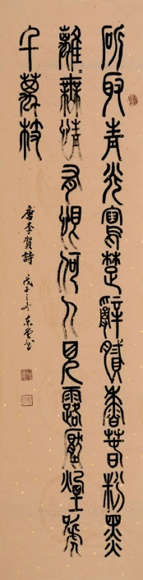 斫取青光寫楚辭膩香春粉黑
離無情有恨何人見露壓煙啼
千萬枝
唐李賀詩